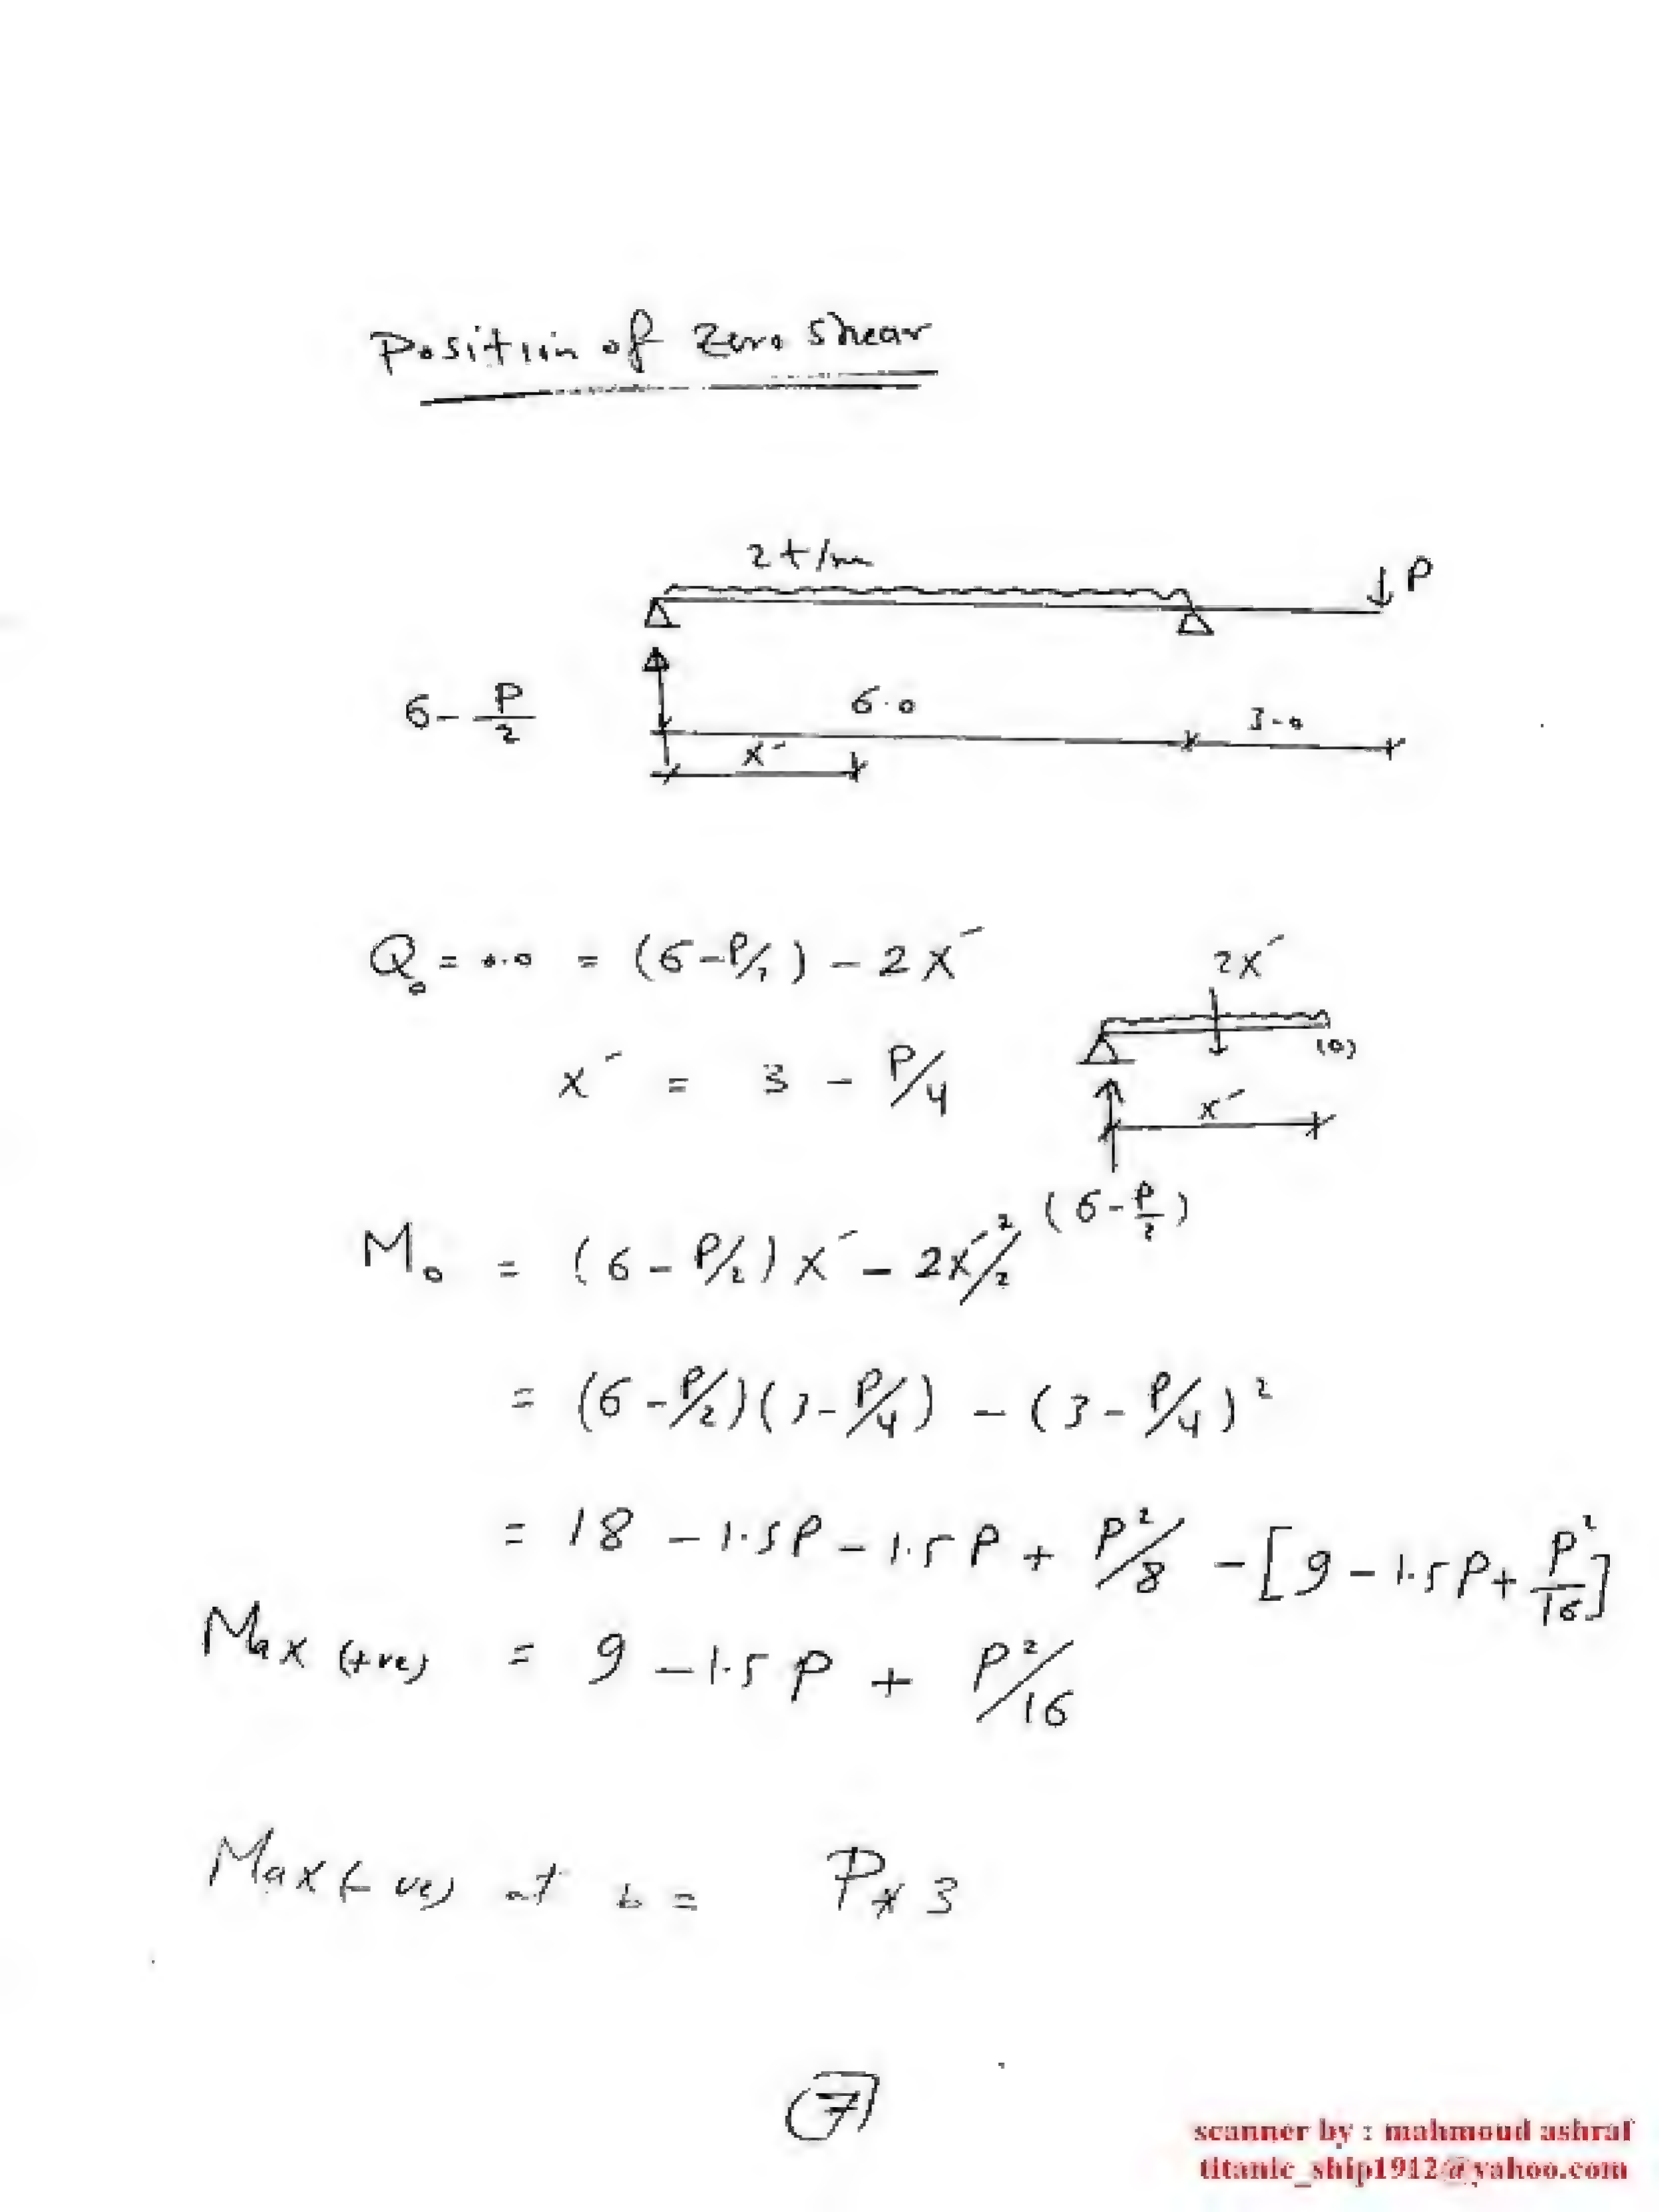 Position of Zero shear
2 t/m
P
6 - P/2
6.0
3.0
x´
Q₀ = 0.0 = (6 - P/2) - 2x´
2x´
(0)
x´ = 3 - P/4
x´
(6 - P/2)
M₀ = (6 - P/2) x´ - 2x´²/2
= (6 - P/2)(3 - P/4) - (3 - P/4)²
= 18 - 1.5P - 1.5P + P²/8 - [9 - 1.5P + P²/16]
Max (+ve) = 9 - 1.5P + P²/16
Max (-ve) at b = P*3
7
scanner by : mahmoud ashraf
titanic_ship1912@yahoo.com